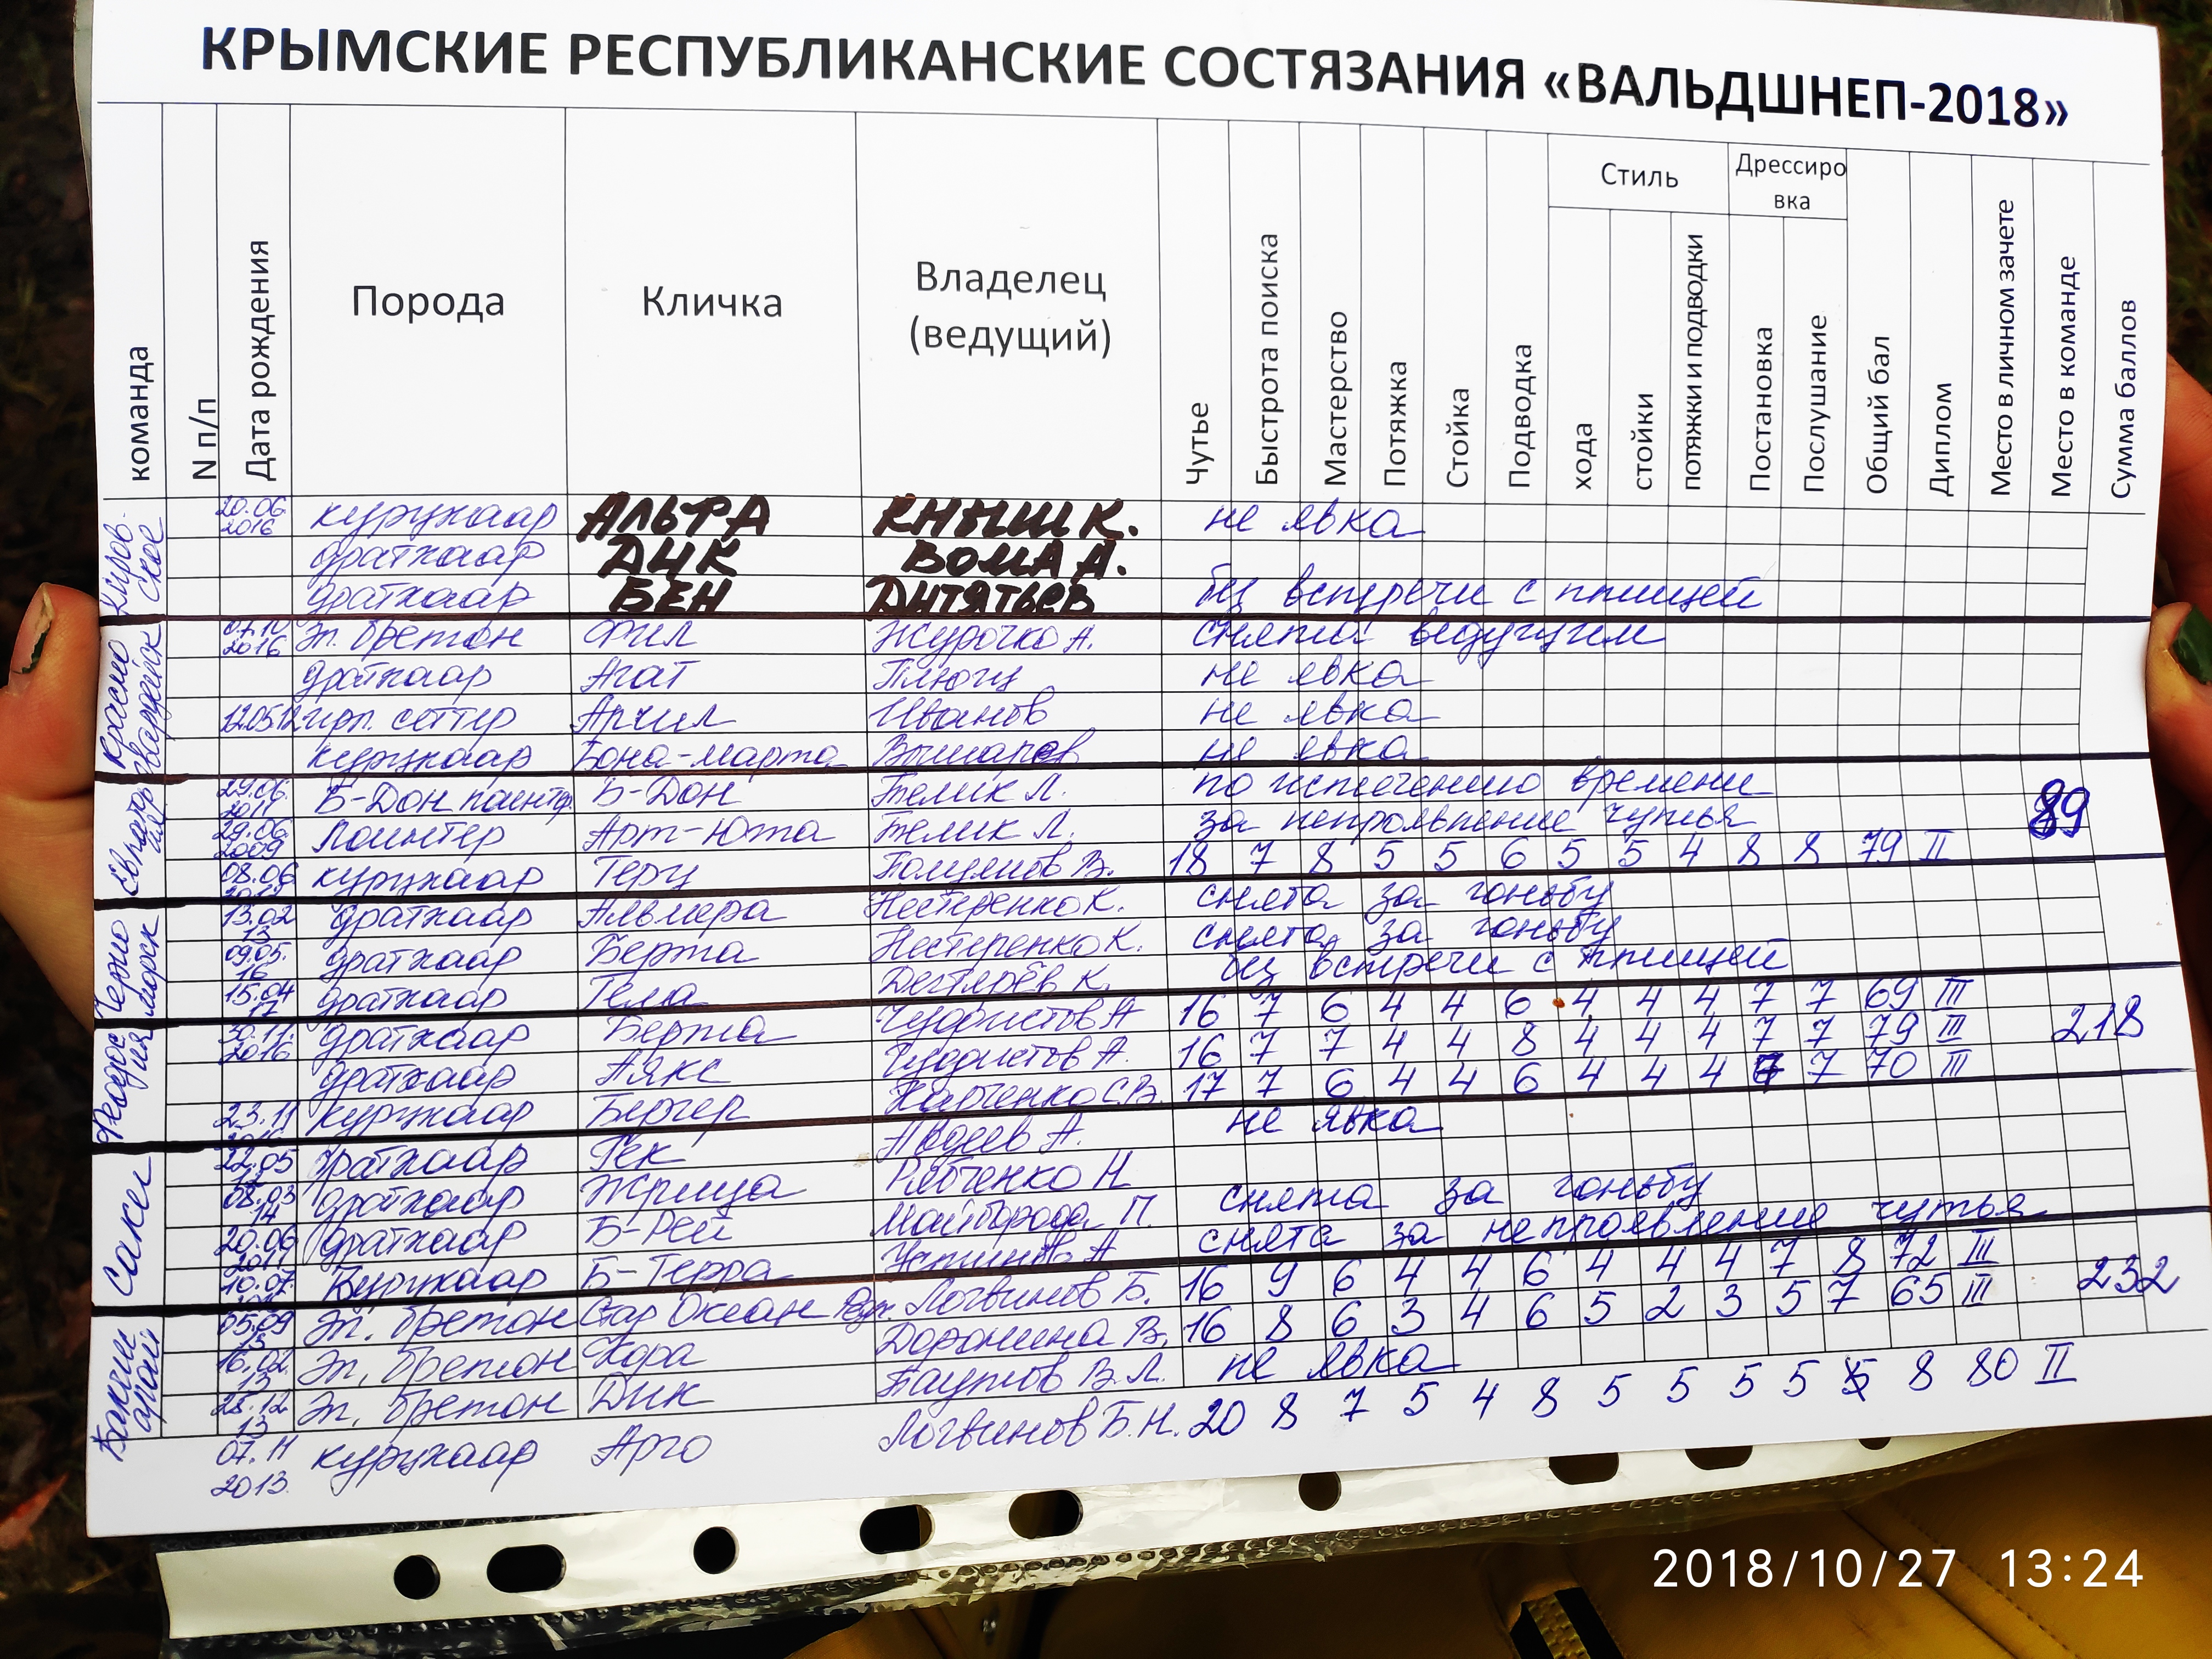 КРЫМСКИЕ РЕСПУБЛИКАНСКИЕ СОСТЯЗАНИЯ «ВАЛЬДШНЕП-2018»
команда N п/п Дата рождения Порода Кличка Владелец (ведущий) Чутье Быстрота поиска Мастерство Потяжка Стойка Подводка Стиль хода стойки потяжки и подводки Дрессировка Постановка Послушание Общий бал Диплом Место в личном зачете Место в команде Сумма баллов
Кировское
20.06 2016 курцхаар АЛЬФА КНЫШ К. не явка
дратхаар ДИК ВОМА А.
дратхаар БЕН ДИТЯТЬЕВ без встречи с птицей
Красногвардейск
07.10 2016 эп. бретон Фил Журочко А. снята ведущим
дратхаар Агат не явка
12.05.12 ирл. сеттер Арчил Иванов не явка
курцхаар Бона-марта не явка
Евпатория
29.06. 2011 Б-Дон пойнтер Б-Дон Телик Л. по истечению времени
29.06. 2009 Пойнтер Арт-Юта Телик Л. за непроявление чутья 89
08.06 курцхаар Герц В. 18 7 8 5 5 6 5 5 4 8 8 79 II
Черноморск
13.02 13 дратхаар Альмера Нестеренко К. снята за гоньбу
09.05. 16 дратхаар Берта Нестеренко К. снята за гоньбу
15.04 17 дратхаар Гела Дегтярёв К. без встречи с птицей
Феодосия
30.11. 2016 дратхаар Берта Чудистов А 16 7 6 4 4 6 4 4 4 7 7 69 III
дратхаар Аякс Чудистов А. 16 7 7 4 4 8 4 4 4 7 7 79 III 218
23.11 курцхаар Бергер Харченко С.В. 17 7 6 4 4 6 4 4 4 7 70 III
Саки
22.05 12 дратхаар Гек Авдеев А. не явка
08.03 14 дратхаар Жрица Рябченко Н
20.06 2011 дратхаар Б-Рей Майборода П. снята за гоньбу
10.07 Курцхаар Б-Терра А снята за непроявление чутья
Бахчисарай
05.09 эп. бретон Стар Океан Логвинов Б. 16 9 6 4 4 6 4 4 4 7 8 72 III 232
16.02. 13 эп. бретон Кора Доронина В. 16 8 6 3 4 6 5 2 3 5 7 65 III
28.12 13 эп. бретон Дик Таутов В.Л. не явка
07.11 2013. курцхаар Арго Логвинов Б.Н. 20 8 7 5 4 8 5 5 5 5 8 80 II
2018/10/27 13:24